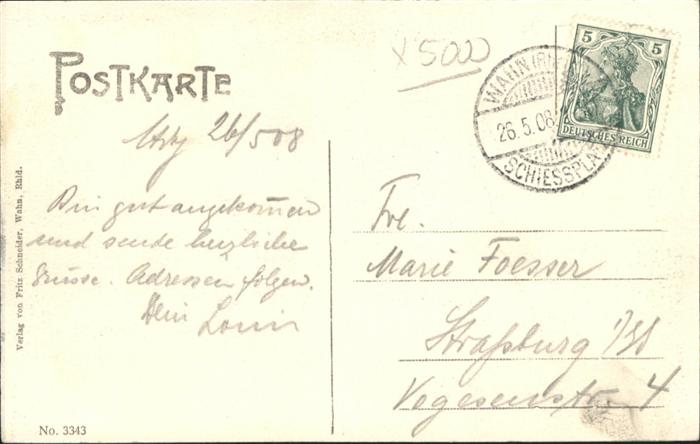 POSTKARTE
X 5000
5 5
DEUTSCHES REICH
WAHN
26.5.08
SCHIESSPLA
26/5 08
Bin gut angekommen
und sende herzliche
Grüsse. Adressen folgen.
Dein Louis
Frl.
Marie Foesser
Straßburg i/Els
Vogesenstr. 4
Verlag von Fritz Schneider, Wahn, Rhld.
No. 3343